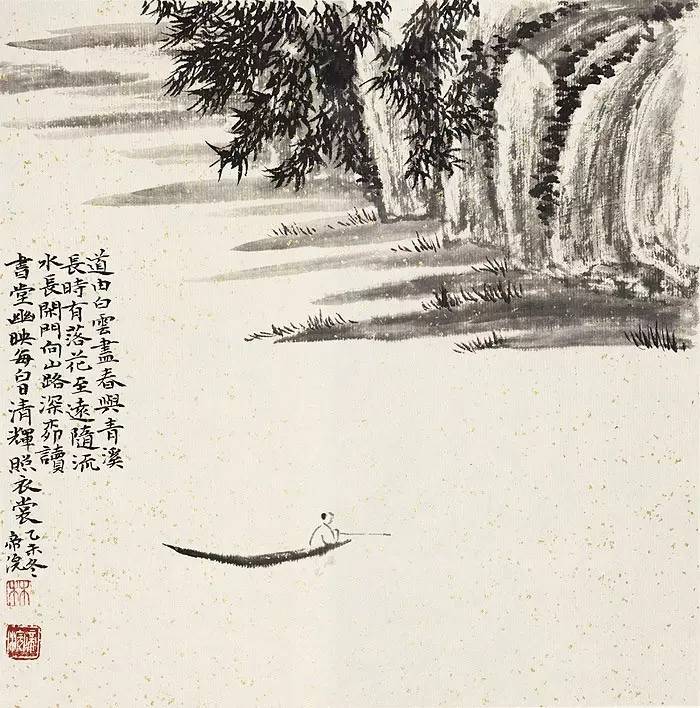 道由白雲盡春與青溪
長時有落花至遠隨流
水長閑門向山路深讀
書堂幽映每白日清輝照衣裳
乙未冬
帝浣
林